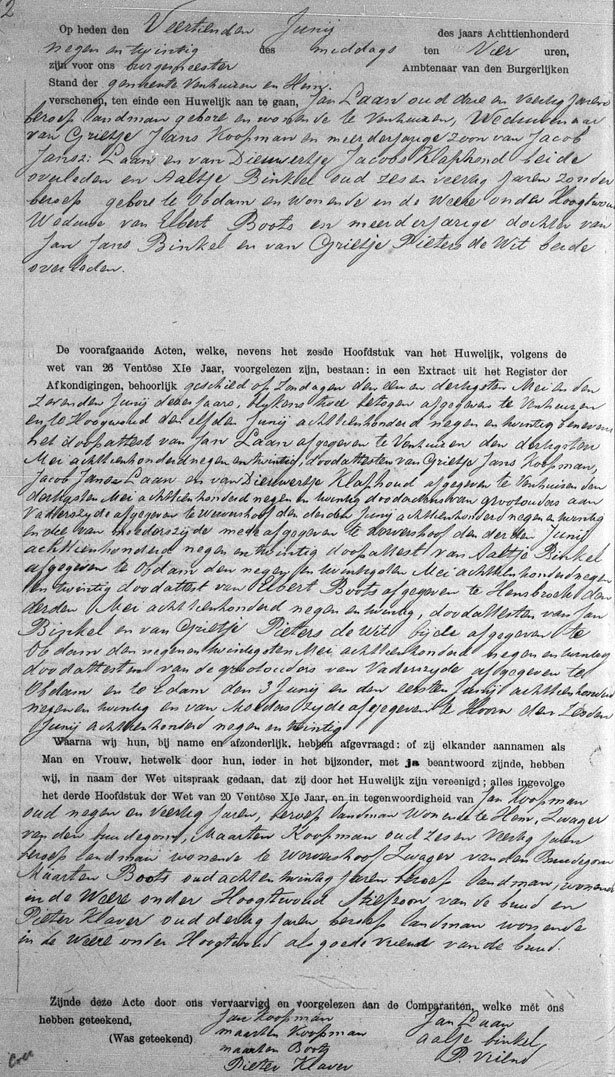 2
Op heden den Veertienden Junij des jaars Achttienhonderd
negen en twintig des middags ten Vier uren,
zijn voor ons burgemeester Ambtenaar van den Burgerlijken
Stand der gemeente Venhuizen en Hem,
verschenen, ten einde een Huwelijk aan te gaan, Jan Laan oud drie en veertig Jaren
beroep landman gebore en wonende te Venhuizen, Weduwenaar
van Grietje Jans Koopman en meerderjarige zoon van Jacob
Jansz: Laan en van Dieuwertje Jacobs Klaphoud beide
overleden en Aaltje Binkel oud zes en veertig Jaren zonder
beroep gebore te Obdam en wonende in de Weere onder Hoogtwoud
Weduwe van Elbert Boots en meerderjarige dochter van
Jan Jans Binkel en van Grietje Pieters de Wit beide
overleden.
De voorafgaande Acten, welke, nevens het zesde Hoofdstuk van het Huwelijk, volgens de
wet van 26 Ventôse XIe Jaar, voorgelezen zijn, bestaan: in een Extract uit het Register der
Afkondigingen, behoorlijk geschied op Zondagen den een en dertigsten Mei en den
Zevenden Junij dezer jaars, blijkens twee afgegeven te Venhuizen
en te Hoogwoud den elfden Junij achttienhonderd negen en twintig benevens
het doopattest van Jan Laan afgegeven te Venhuizen den dertigsten
Mei achttienhonderd negen en twintig, doodattesten van Grietje Jans Koopman,
Jacob Jansz Laan en van Dieuwertje Klaphoud afgegeven te Venhuizen den
dertigsten Mei achttienhonderd negen en twintig doodacten van grootouders aan
Vaderszyde afgegeven te Wewershoof den derden Junij achttienhonderd negen en twintig
en die van moederszyde mede afgegeven te Wewershoof den derden Junij
achttienhonderd negen en twintig doopattest van Aaltje Binkel
afgegeven te Obdam den negen en twintigsten Mei achttienhonderd negen
en twintig doodattest van Elbert Boots afgegeven te Hensbroek den
derden Mei achttienhonderd negen en twintig, doodattesten van Jan
Binkel en van Grietje Pieters de Wit bijde afgegeven te
Obdam den negen en twindigsten Mei achttienhonderd negen en twintig
doodattesten van de grootouders van Vaderszyde afgegeven te
Obdam en te Edam den 3 Junij en den eersten Junij achttienhonderd
negen en twintig en van Moeders Zyde afgegeven te Hoorn den Zesden
Junij achttienhonderd negen en twintig
Waarna wij hun, bij name en afzonderlijk, hebben afgevraagd: of zij elkander aannamen als
Man en Vrouw, hetwelk door hun, ieder in het bijzonder, met ja beantwoord zijnde, hebben
wij, in naam der Wet uitspraak gedaan, dat zij door het Huwelijk zijn vereenigd; alles ingevolge
het derde Hoofdstuk der Wet van 20 Ventôse XIe Jaar, en in tegenwoordigheid van Jan Koopman
oud negen en veertig Jaren, beroep landman wonende te Hem, Zwager
van den bruidegom, Maarten Koopman oud zes en veertig Jaren
beroep landman wonende te Wewershoof Zwager van den Bruidegom
Maarten Boots oud acht en twintig Jaren beroep landman, wonende
in de Weere onder Hoogtwoud Stiefzoon van de bruid en
Pieter Klaver oud dertig jaren beroep landman wonende
in de Weere onder Hoogtwoud als goede vriend van de bruid.
Zijnde deze Acte door ons vervaarvigd en voorgelezen aan de Comparanten, welke mét ons
hebben geteekend, Jan Koopman Jan Laan
(Was geteekend) maarten Koopman aaltje binkel
maarten Boots P. Vriend
Pieter Klaver